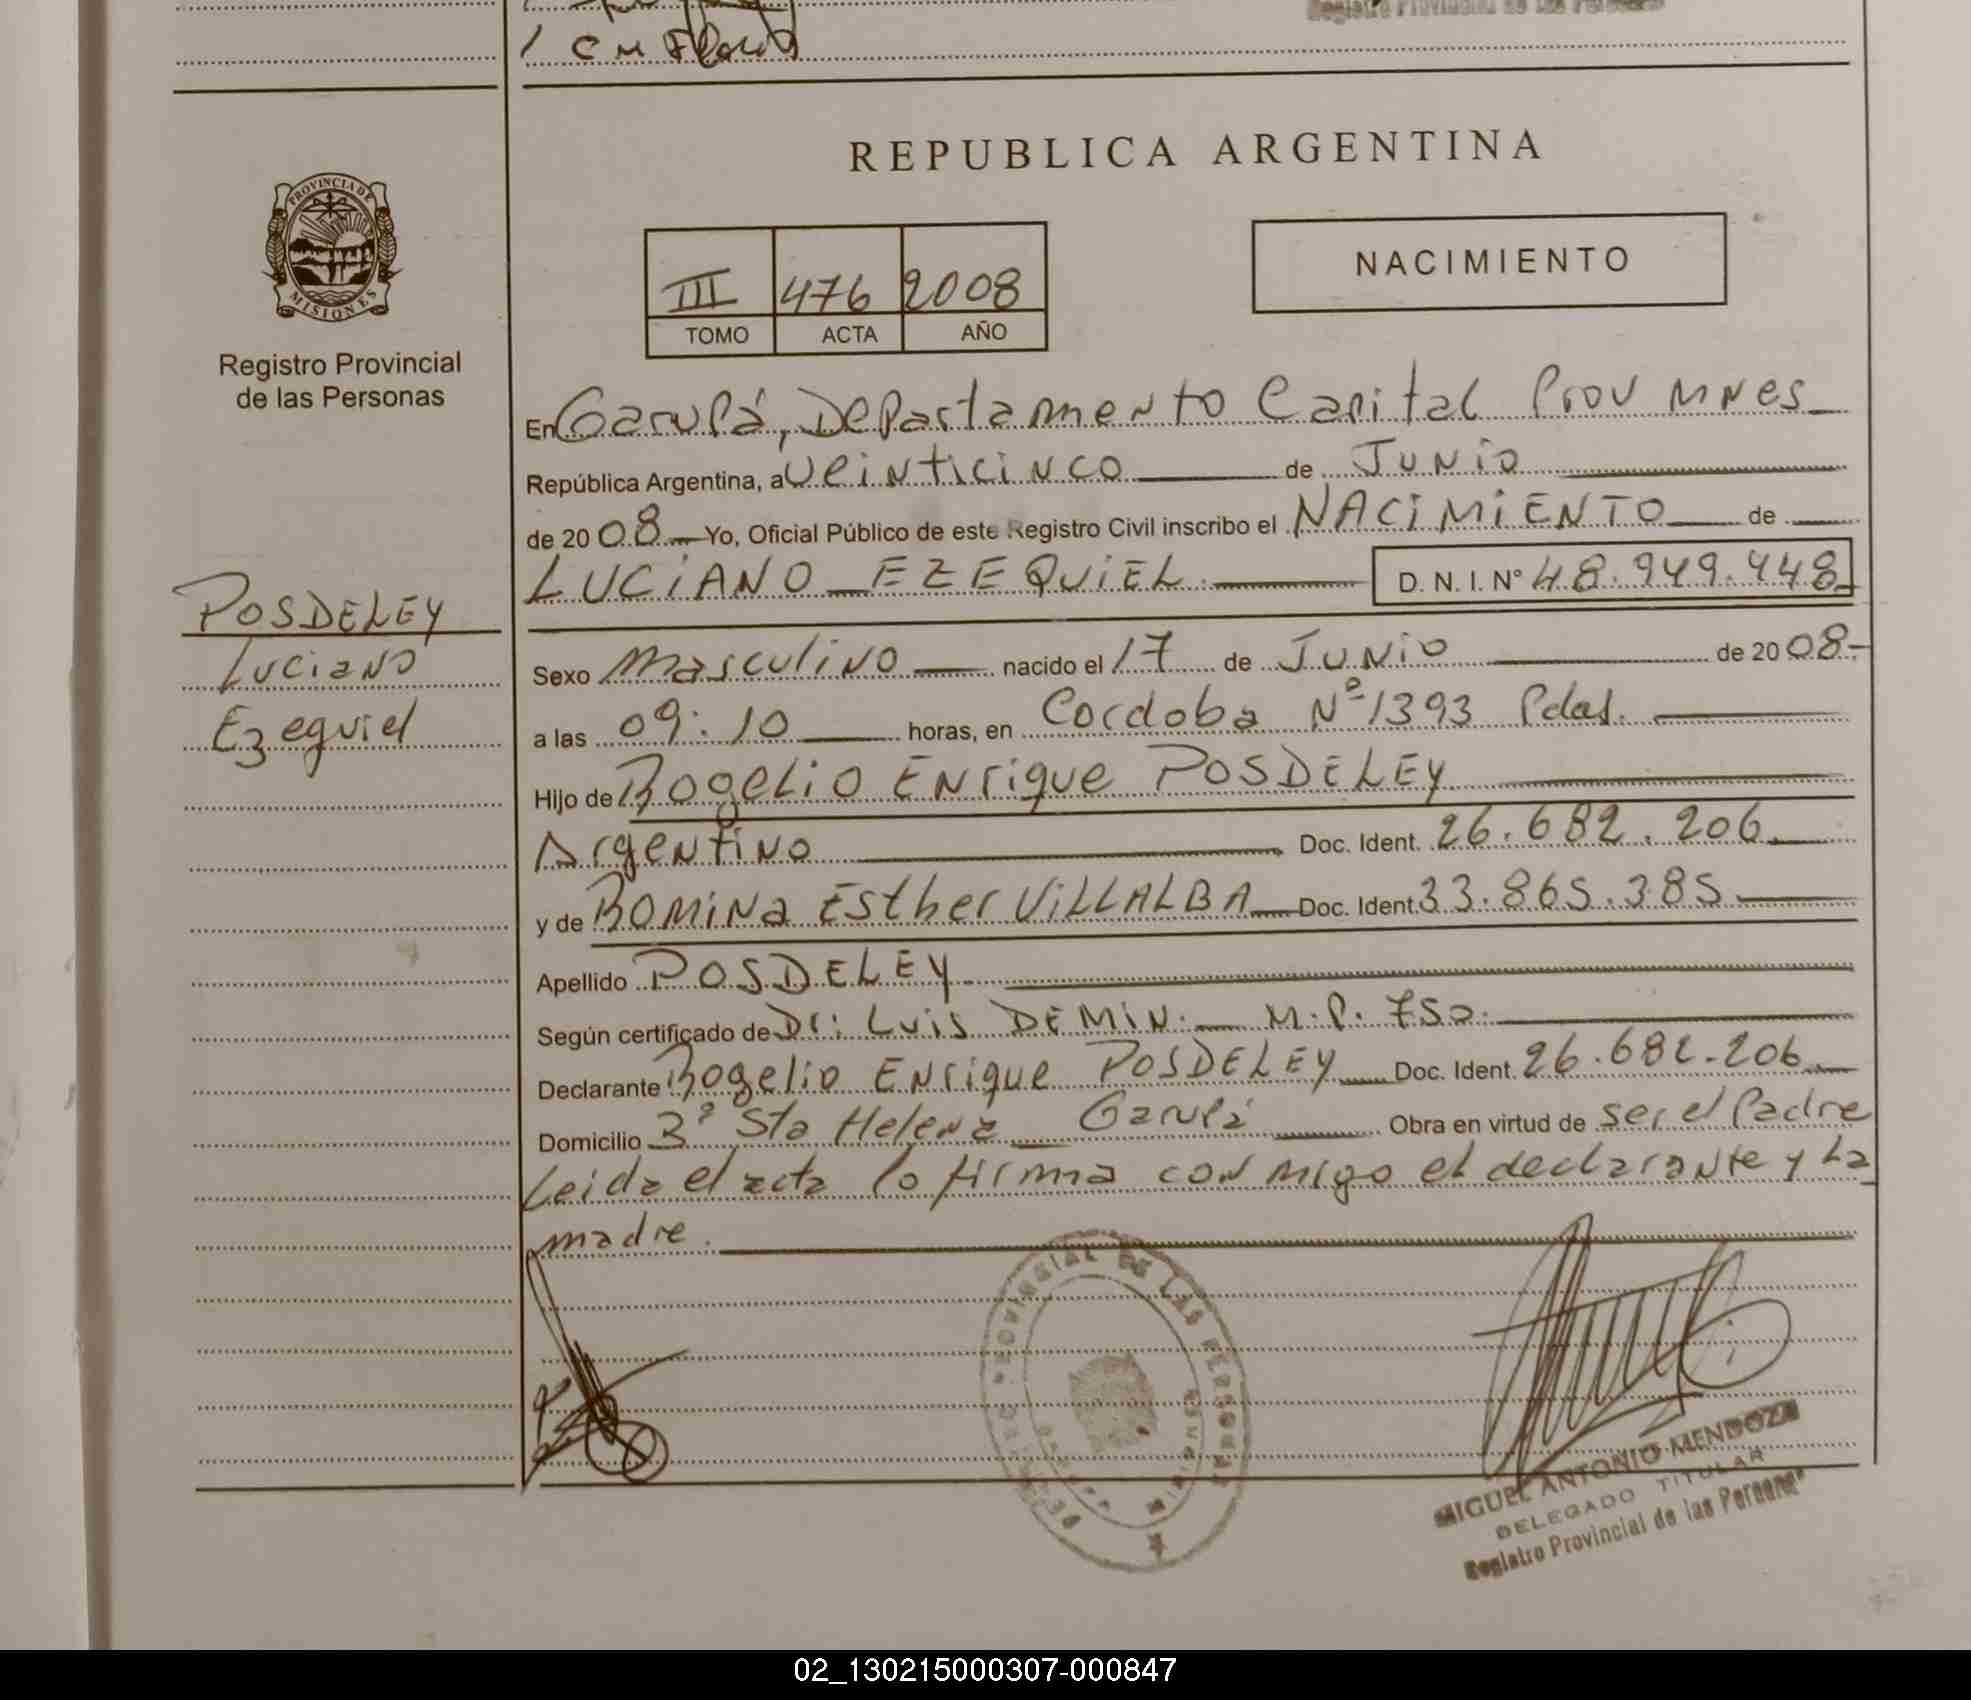 Registro Provincial de las Personas
REPUBLICA ARGENTINA
PROVINCIA DE
MISIONES
Registro Provincial
de las Personas
NACIMIENTO
III 476 2008
TOMO ACTA AÑO
En Garupá, Departamento Capital Prov Mnes
República Argentina, a veinticinco de Junio
de 2008 Yo, Oficial Público de este Registro Civil inscribo el NACIMIENTO de
LUCIANO EZEQUIEL D. N. I. Nº 48.949.448
POSDELEY
Luciano
Ezequiel
Sexo Masculino nacido el 17 de Junio de 2008-
a las 09:10 horas, en Cordoba Nº 1393 Pdas.
Hijo de Rogelio Enrique POSDELEY
Argentino Doc. Ident. 26.682.206
y de ROMINA Esther VILLALBA Doc. Ident. 33.865.385
Apellido POSDELEY
Según certificado de Dr: Luis DEMIN. M.P. 750.
Declarante Rogelio Enrique POSDELEY Doc. Ident. 26.682.206
Domicilio 3º Sta Helena Garupá Obra en virtud de ser el Padre
Leida el acta lo firma conmigo el declarante y La
madre.
PROVINCIAL DE LAS PERSONAS
MIGUEL ANTONIO MENDOZA
DELEGADO TITULAR
Registro Provincial de las Personas
02_130215000307-000847